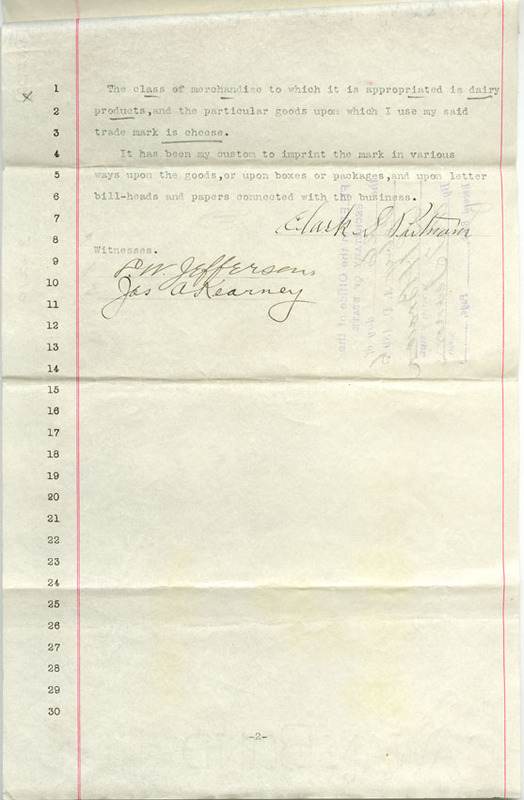 1 The class of merchandise to which it is appropriated is dairy
2 products,and the particular goods upon which I use my said
3 trade mark is cheese.
4 It has been my custom to imprint the mark in various
5 ways upon the goods,or upon boxes or packages,and upon letter
6 bill-heads and papers connected with the business.
7 Clark S Putnam
8 Witnesses.
9 Jeffersons
10 Jas A Kearney
11
12
13
14
15
16
17
18
19
20
21
22
23
24
25
26
27
28
29
30
SECRETARY OF STATE
in the Office of the
-2-